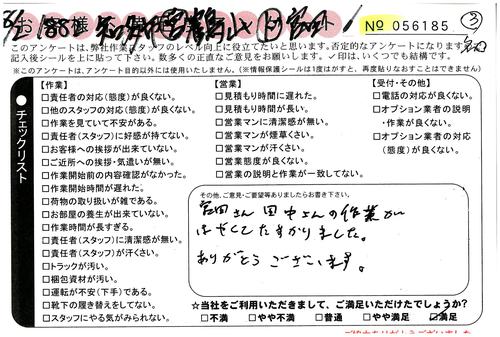 No 056185 ③
このアンケートは、弊社作業スタッフのレベル向上に役立てたいと思います。否定的なアンケートになります
記入後シールを上に貼って下さい。数多くの正直なご意見をお願いします。✓印は、いくつでも結構です。
※このアンケートは、アンケート目的以外には使用いたしません。(※情報保護シールは1度はがすと、再度貼りなおすことはできません)
チェックリスト
【作業】
□責任者の対応(態度)が良くない。
□他のスタッフの対応(態度)が良くない。
□作業を見ていて不安がある。
□責任者(スタッフ)に好感が持てない。
□お客様への挨拶が出来ていない。
□ご近所への挨拶・気遣いが無い。
□作業開始前の内容確認がなかった。
□作業開始時間が遅れた。
□荷物の取り扱いが雑である。
□お部屋の養生が出来ていない。
□作業時間が長すぎる。
□責任者(スタッフ)に清潔感が無い。
□責任者(スタッフ)が汗くさい。
□トラックが汚い。
□梱包資材が汚い。
□運転が不安(下手)である。
□靴下の履き替えをしてない。
□スタッフにやる気がみられない。
【営業】
□見積もり時間に遅れた。
□見積もり時間が長い。
□営業マンに清潔感が無い。
□営業マンが煙草くさい。
□営業マンが汗くさい。
□営業態度が良くない。
□営業の説明と作業が一致してない。
【受付・その他】
□電話の対応が良くない。
□オプション業者の説明
・作業が良くない。
□オプション業者の対応
(態度)が良くない。
その他、ご意見・ご要望等ありましたらお書き下さい。
宮田さん 田中さんの作業が
はやくてたすかりました。
ありがとう ございます。
☆当社をご利用いただきまして、ご満足いただけたでしょうか?
□不満 □やや不満 □普通 □やや満足 ☑満足
ご協力ありがとうございました